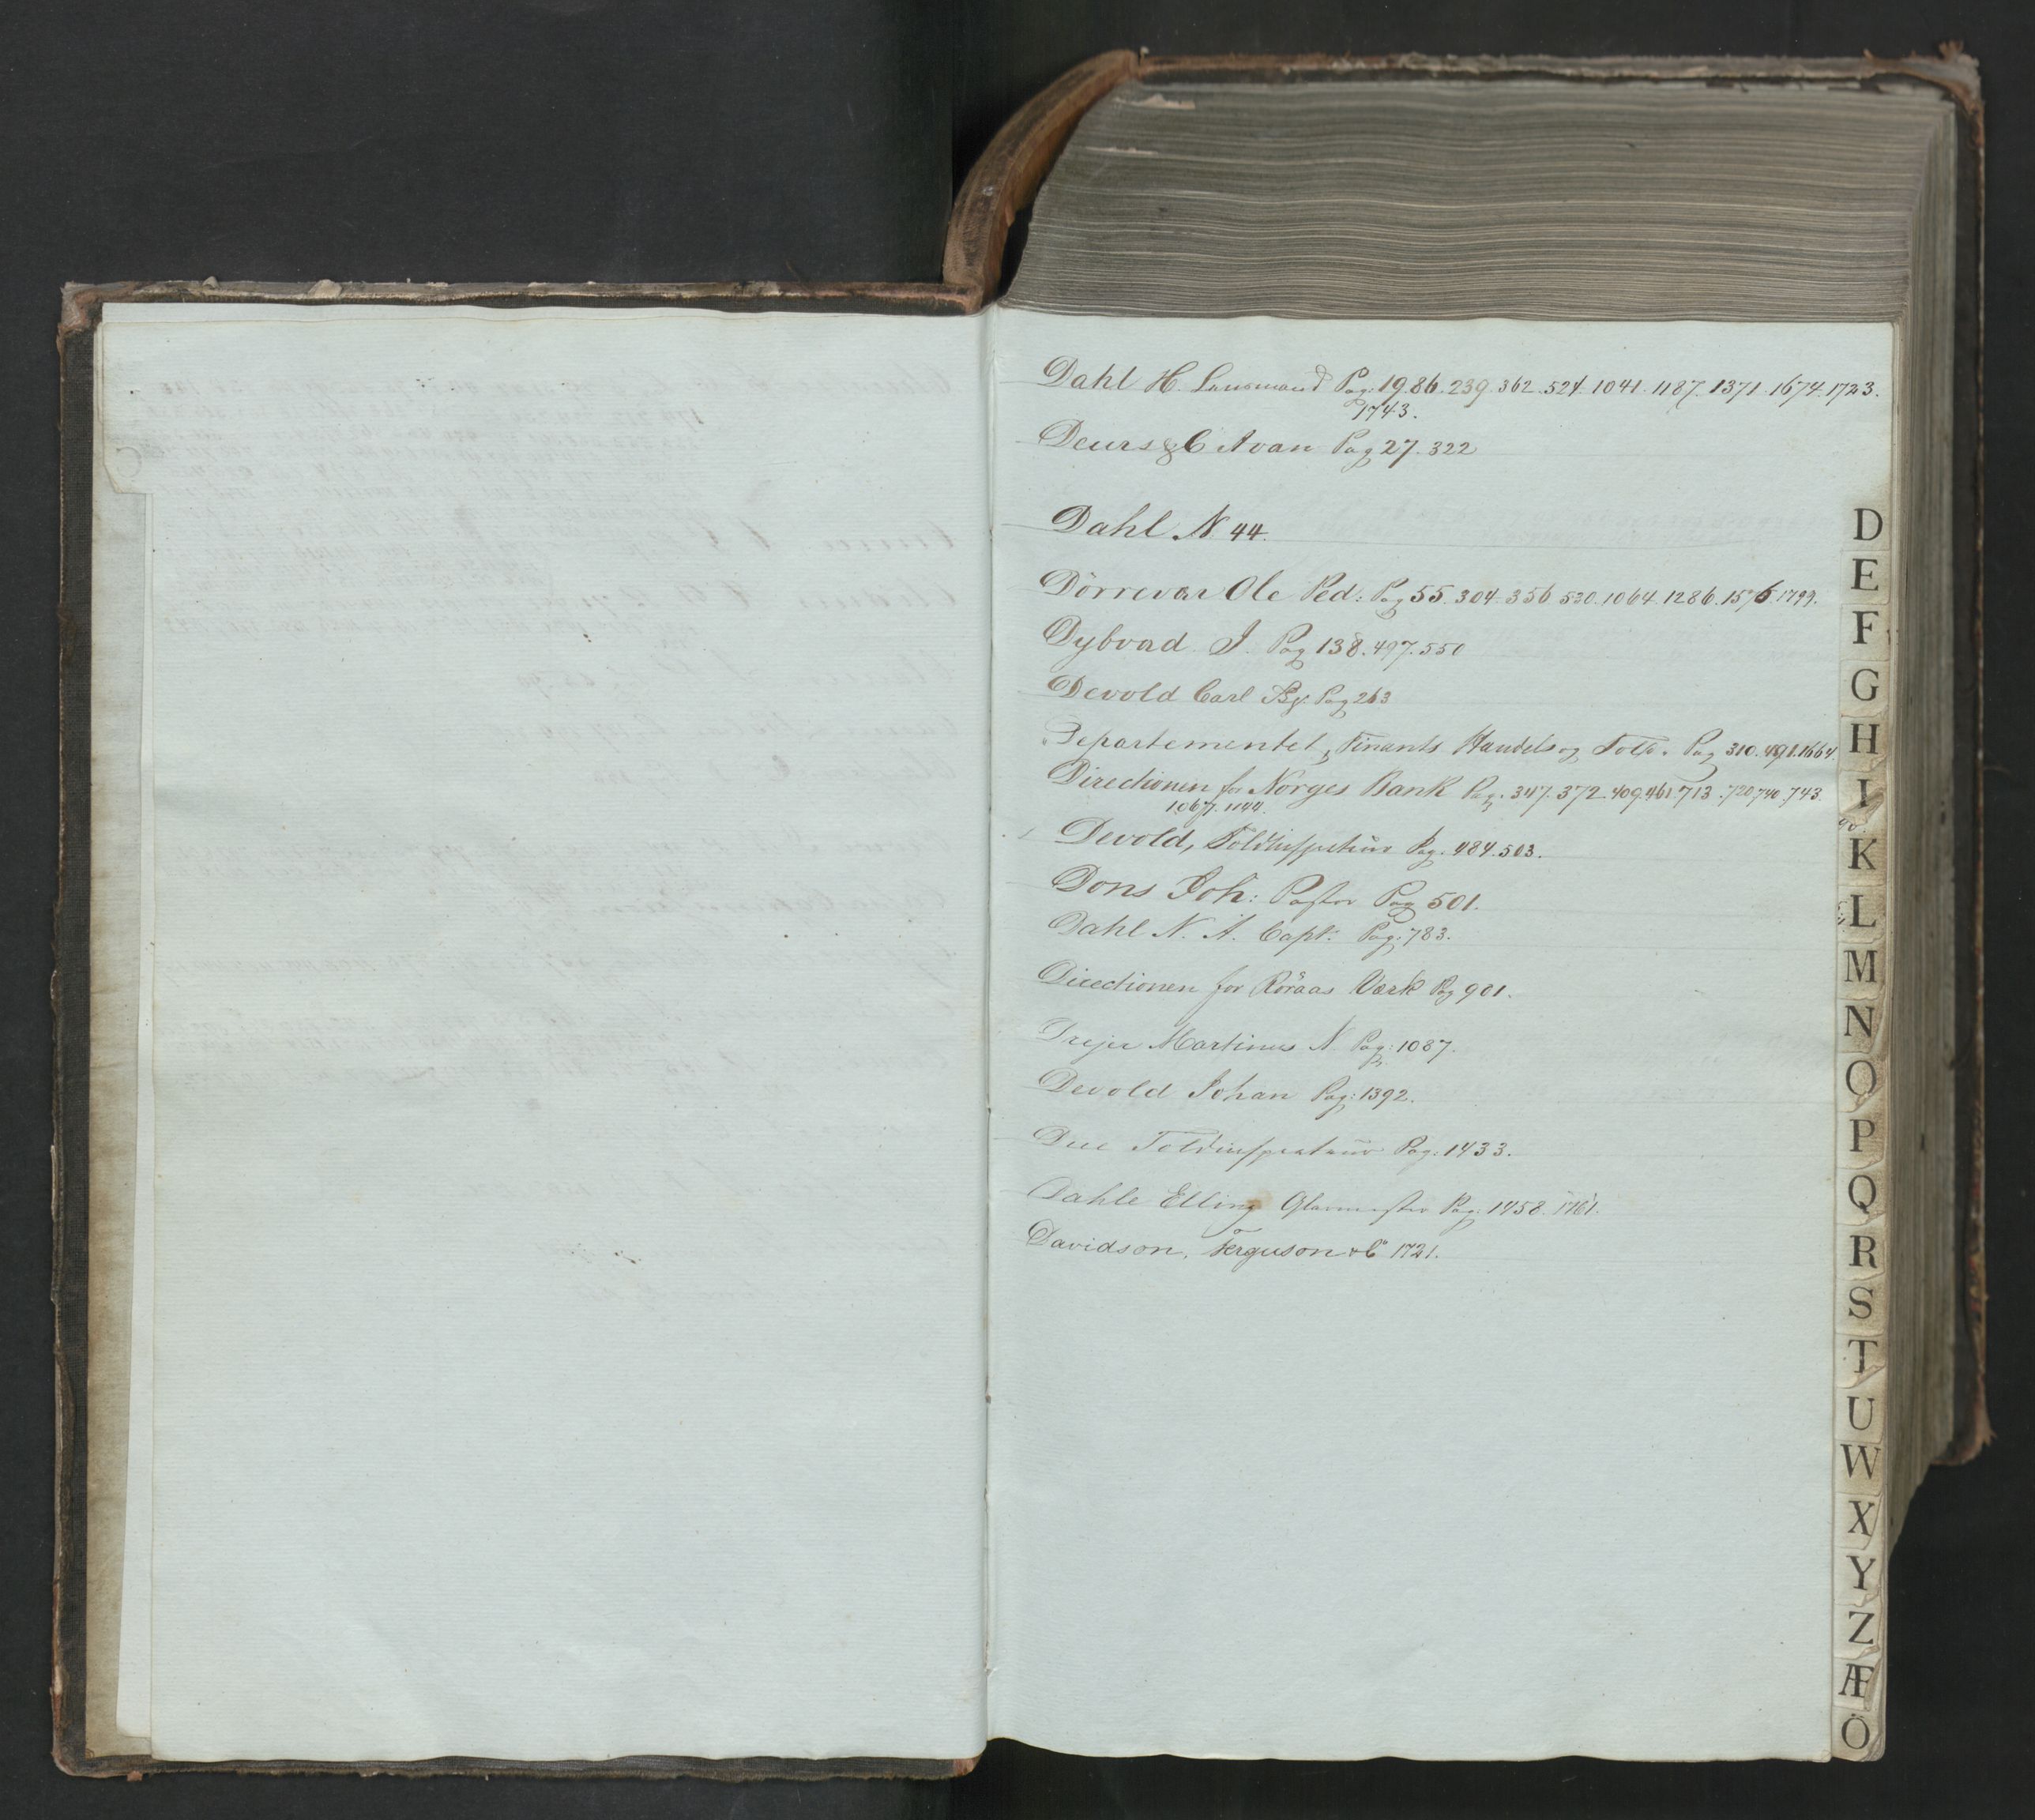 Dahl H. Lensmand Pag. 19. 86. 239. 362. 524. 1041. 1187. 1371. 1674. 1723.
1743.
Deurs & C A van Pag 27. 322
Dahl N 44.
Dörrevar Ole Ped: Pag 55. 304. 356 520. 1064. 1286. 1576. 1799.
Dybvad J. Pag 138. 497. 550
Devold Carl Pag 263
Departementet, Finants Handels og Told. Pag 310. 491. 1664.
Directionen for Norges Bank Pag. 347. 372. 409. 461. 713. 720. 740. 743.
1067. 1144.
Devold, Toldinspecteur Pag. 484. 503.
Dons Joh: Pastor Pag 501.
Dahl N. A. Capt: Pag. 783.
Directionen for Röraas Værk Pag 901.
Drejer Martinus N. Pag: 1087.
Devold Johan Pag: 1392.
Due Toldinspecteur Pag: 1433.
Dahle Elling Glarmester Pag. 1458. 1761.
Davidson, Ferguson & Co 1721.
D
E
F
G
H
I
K
L
M
N
O
P
Q
R
S
T
U
W
X
Y
Z
Æ
Ö